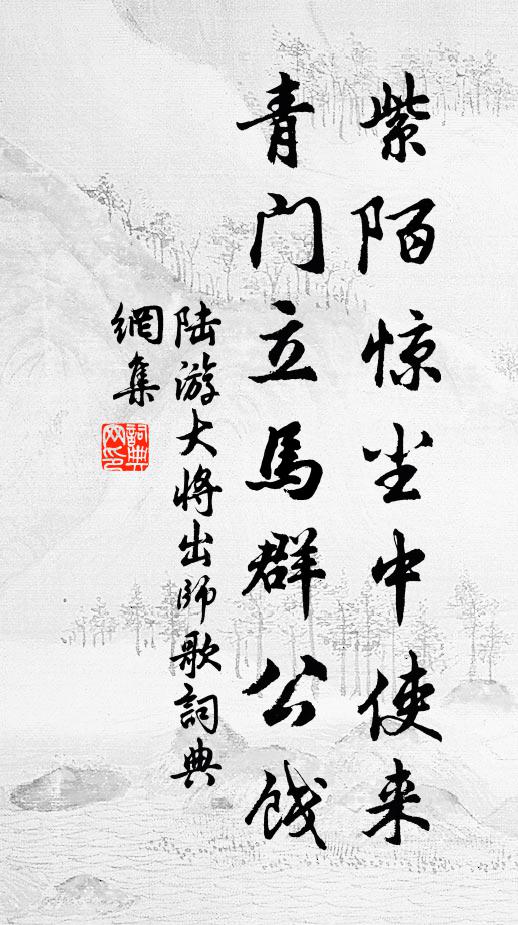 紫陌惊尘中使来
青门立馬群公饯
陆游大将出师歌詞典
網集
詞典网印